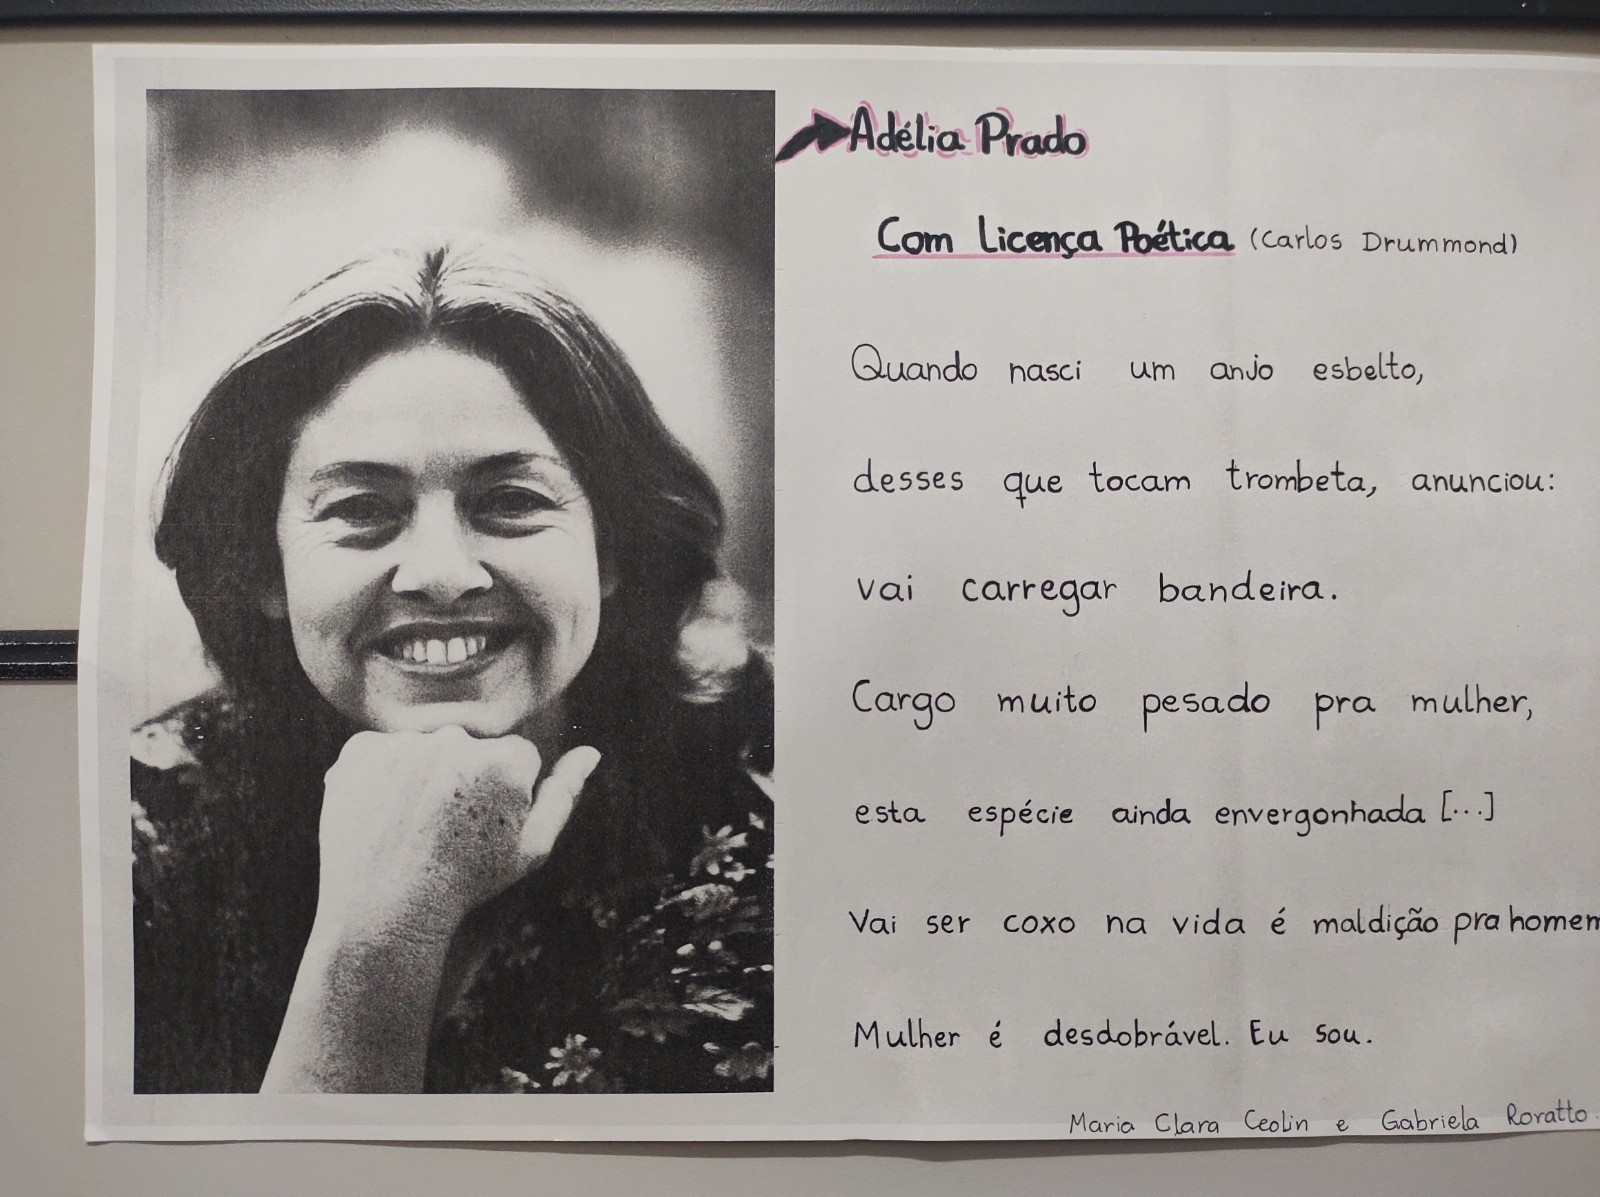 Adélia Prado
Com Licença Poética (Carlos Drummond)
Quando nasci um anjo esbelto,
desses que tocam trombeta, anunciou:
vai carregar bandeira.
Cargo muito pesado pra mulher,
esta espécie ainda envergonhada [...]
Vai ser coxo na vida é maldição pra homem
Mulher é desdobrável. Eu sou.
Maria Clara Ceolin e Gabriela Roratto.